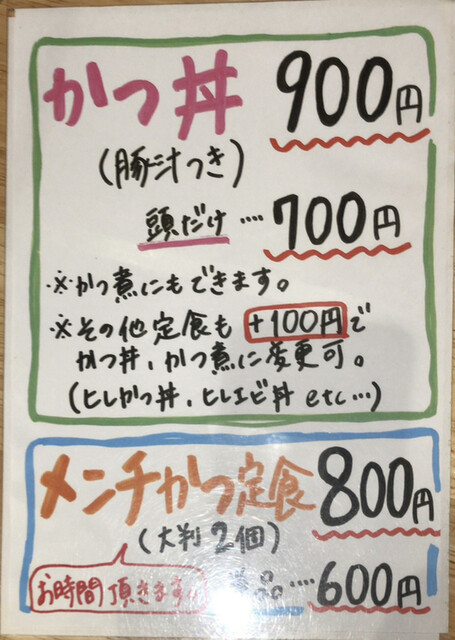 かつ丼 900円
(豚汁つき)
頭だけ‥‥700円
※かつ煮にもできます。
※その他定食も+100円で
かつ丼、かつ煮に変更可。
(ヒレかつ丼、ヒレエビ丼 etc…)
メンチかつ定食 800円
(大判2個)
お時間頂きます。
単品‥‥600円